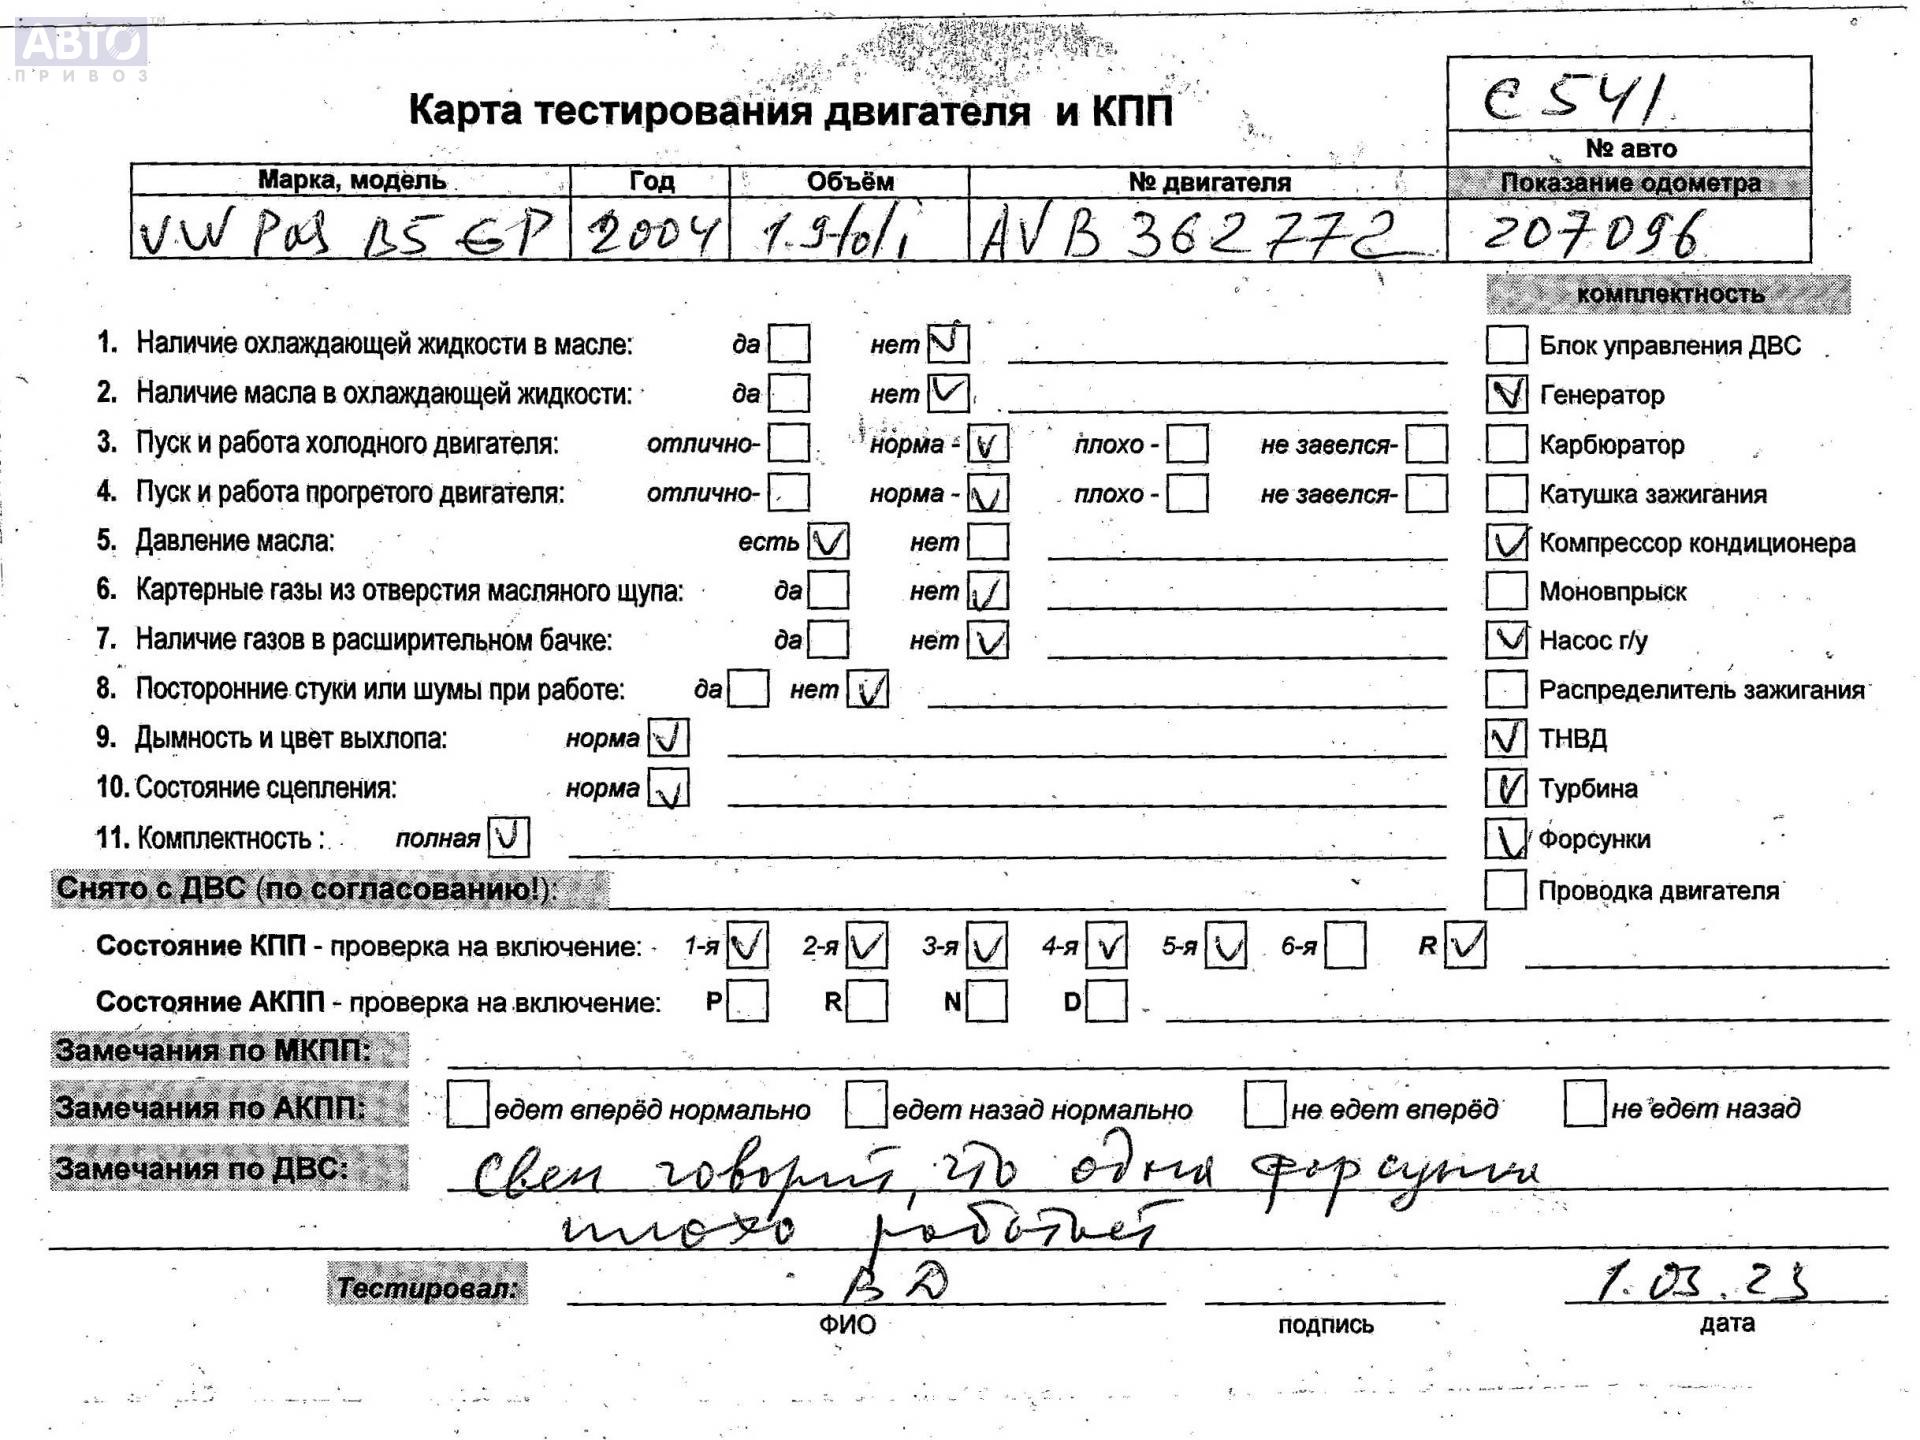 АВТО
ПРИВОЗ
Карта тестирования двигателя и КПП
С 541
№ авто
Марка, модель Год Объём № двигателя Показание одометра
VW Pas B5 GP 2004 1.9tdi AVB 362772 207096
комплектность
1. Наличие охлаждающей жидкости в масле: да нет
Блок управления ДВС
2. Наличие масла в охлаждающей жидкости: да нет
Генератор
3. Пуск и работа холодного двигателя: отлично- норма - плохо - не завелся-
Карбюратор
4. Пуск и работа прогретого двигателя: отлично- норма - плохо - не завелся-
Катушка зажигания
5. Давление масла: есть нет
Компрессор кондиционера
6. Картерные газы из отверстия масляного щупа: да нет
Моновпрыск
7. Наличие газов в расширительном бачке: да нет
Насос г/у
8. Посторонние стуки или шумы при работе: да нет
Распределитель зажигания
9. Дымность и цвет выхлопа: норма
ТНВД
10. Состояние сцепления: норма
Турбина
11. Комплектность : полная
Форсунки
Снято с ДВС (по согласованию!):
Проводка двигателя
Состояние КПП - проверка на включение: 1-я 2-я 3-я 4-я 5-я 6-я R
Состояние АКПП - проверка на включение: P R N D
Замечания по МКПП:
Замечания по АКПП: едет вперёд нормально едет назад нормально не едет вперёд не едет назад
Замечания по ДВС: Свен говорит, что одна форсунка
плохо работает
Тестировал: ВД 1.03.23
ФИО подпись дата